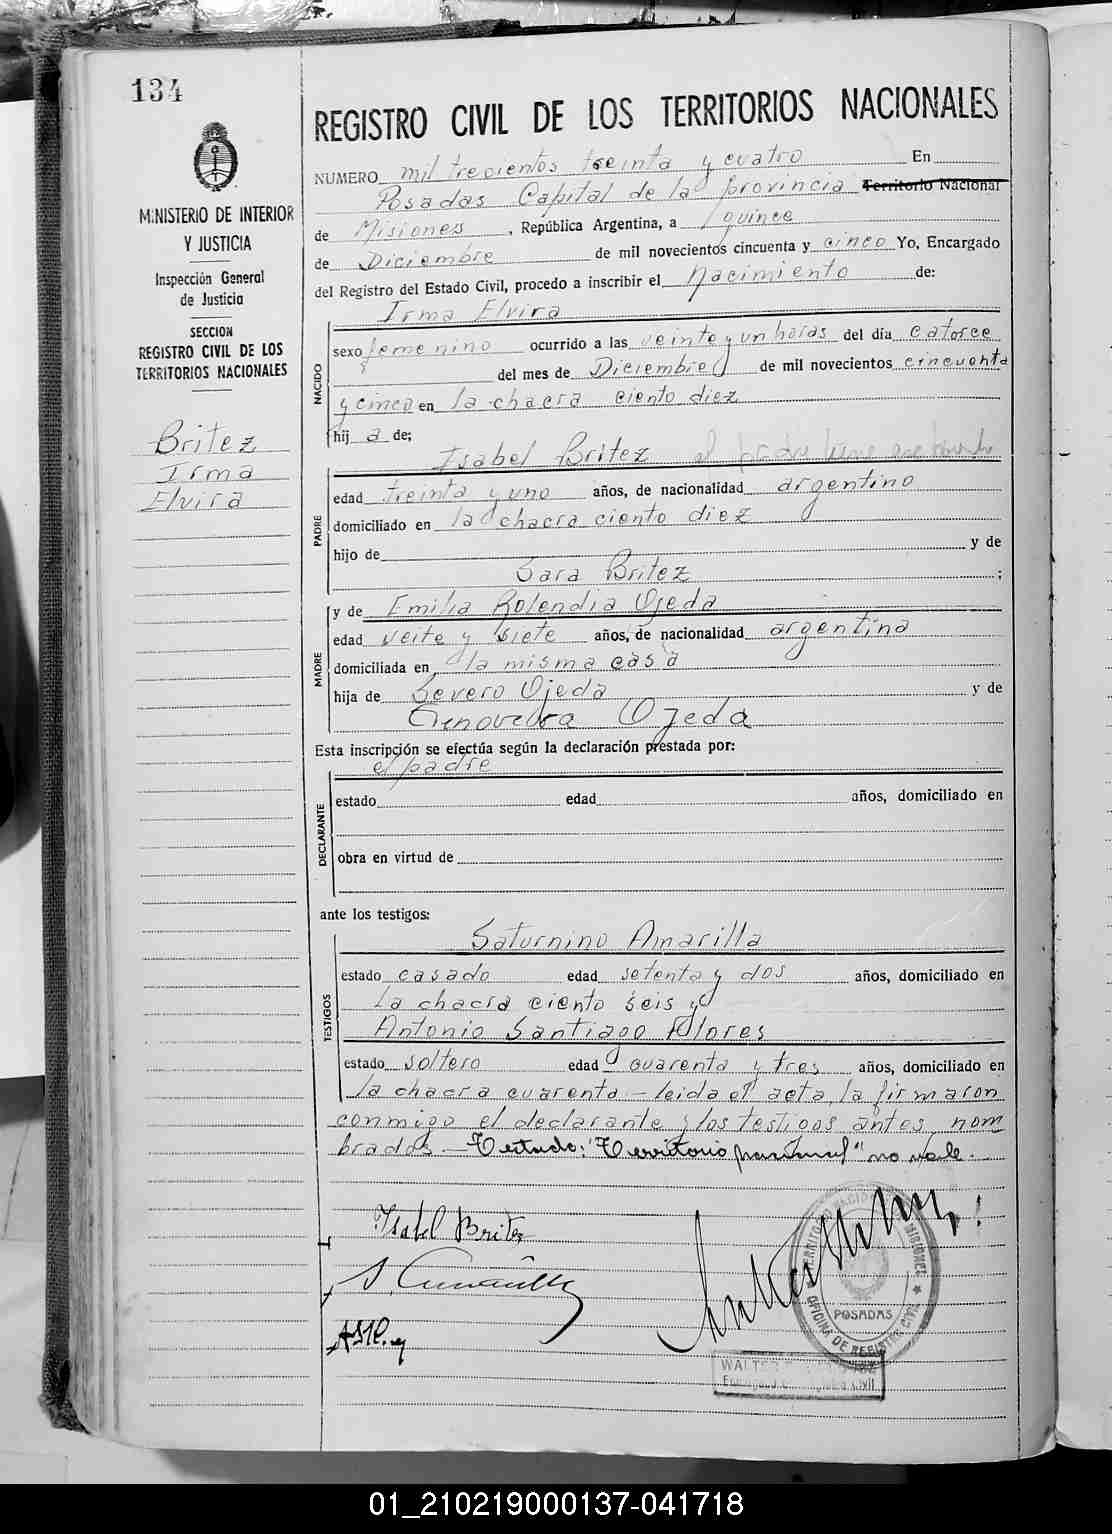 134
REGISTRO CIVIL DE LOS TERRITORIOS NACIONALES
MINISTERIO DE INTERIOR
Y JUSTICIA
Inspección General
de Justicia
SECCION
REGISTRO CIVIL DE LOS
TERRITORIOS NACIONALES
Britez
Irma
Elvira
NUMERO mil trecientos treinta y cuatro En
Posadas Capital de la provincia Territorio Nacional
de Misiones, República Argentina, a quince
de Diciembre de mil novecientos cincuenta y cinco Yo, Encargado
del Registro del Estado Civil, procedo a inscribir el Nacimiento de:
Irma Elvira
NACIDO
sexo femenino ocurrido a las veinte y un horas del día catorce
del mes de Diciembre de mil novecientos cincuenta
y cinco en la chacra ciento diez
hij a de;
Isabel Britez el padre tiene ese
PADRE
edad treinta y uno años, de nacionalidad argentino
domiciliado en la chacra ciento diez
hijo de y de
Sara Britez ;
MADRE
y de Emilia Rolendia Ojeda
edad veite y siete años, de nacionalidad argentina
domiciliada en la misma casa
hija de Severo Ojeda y de
Ojeda
Esta inscripción se efectúa según la declaración prestada por:
el padre
DECLARANTE
estado edad años, domiciliado en
obra en virtud de
ante los testigos:
Saturnino Amarilla
TESTIGOS
estado casado edad setenta y dos años, domiciliado en
la chacra ciento seis y
Antonio Santiago Flores
estado soltero edad cuarenta y tres años, domiciliado en
la chacra cuarenta - leida el acta, la firmaron
conmigo el declarante y los testigos antes nom
brados - Testado: "Territorio nacional" no vale.
Isabel Britez
POSADAS
OFICINA DE REGISTRO CIVIL
WALTER
01_210219000137-041718